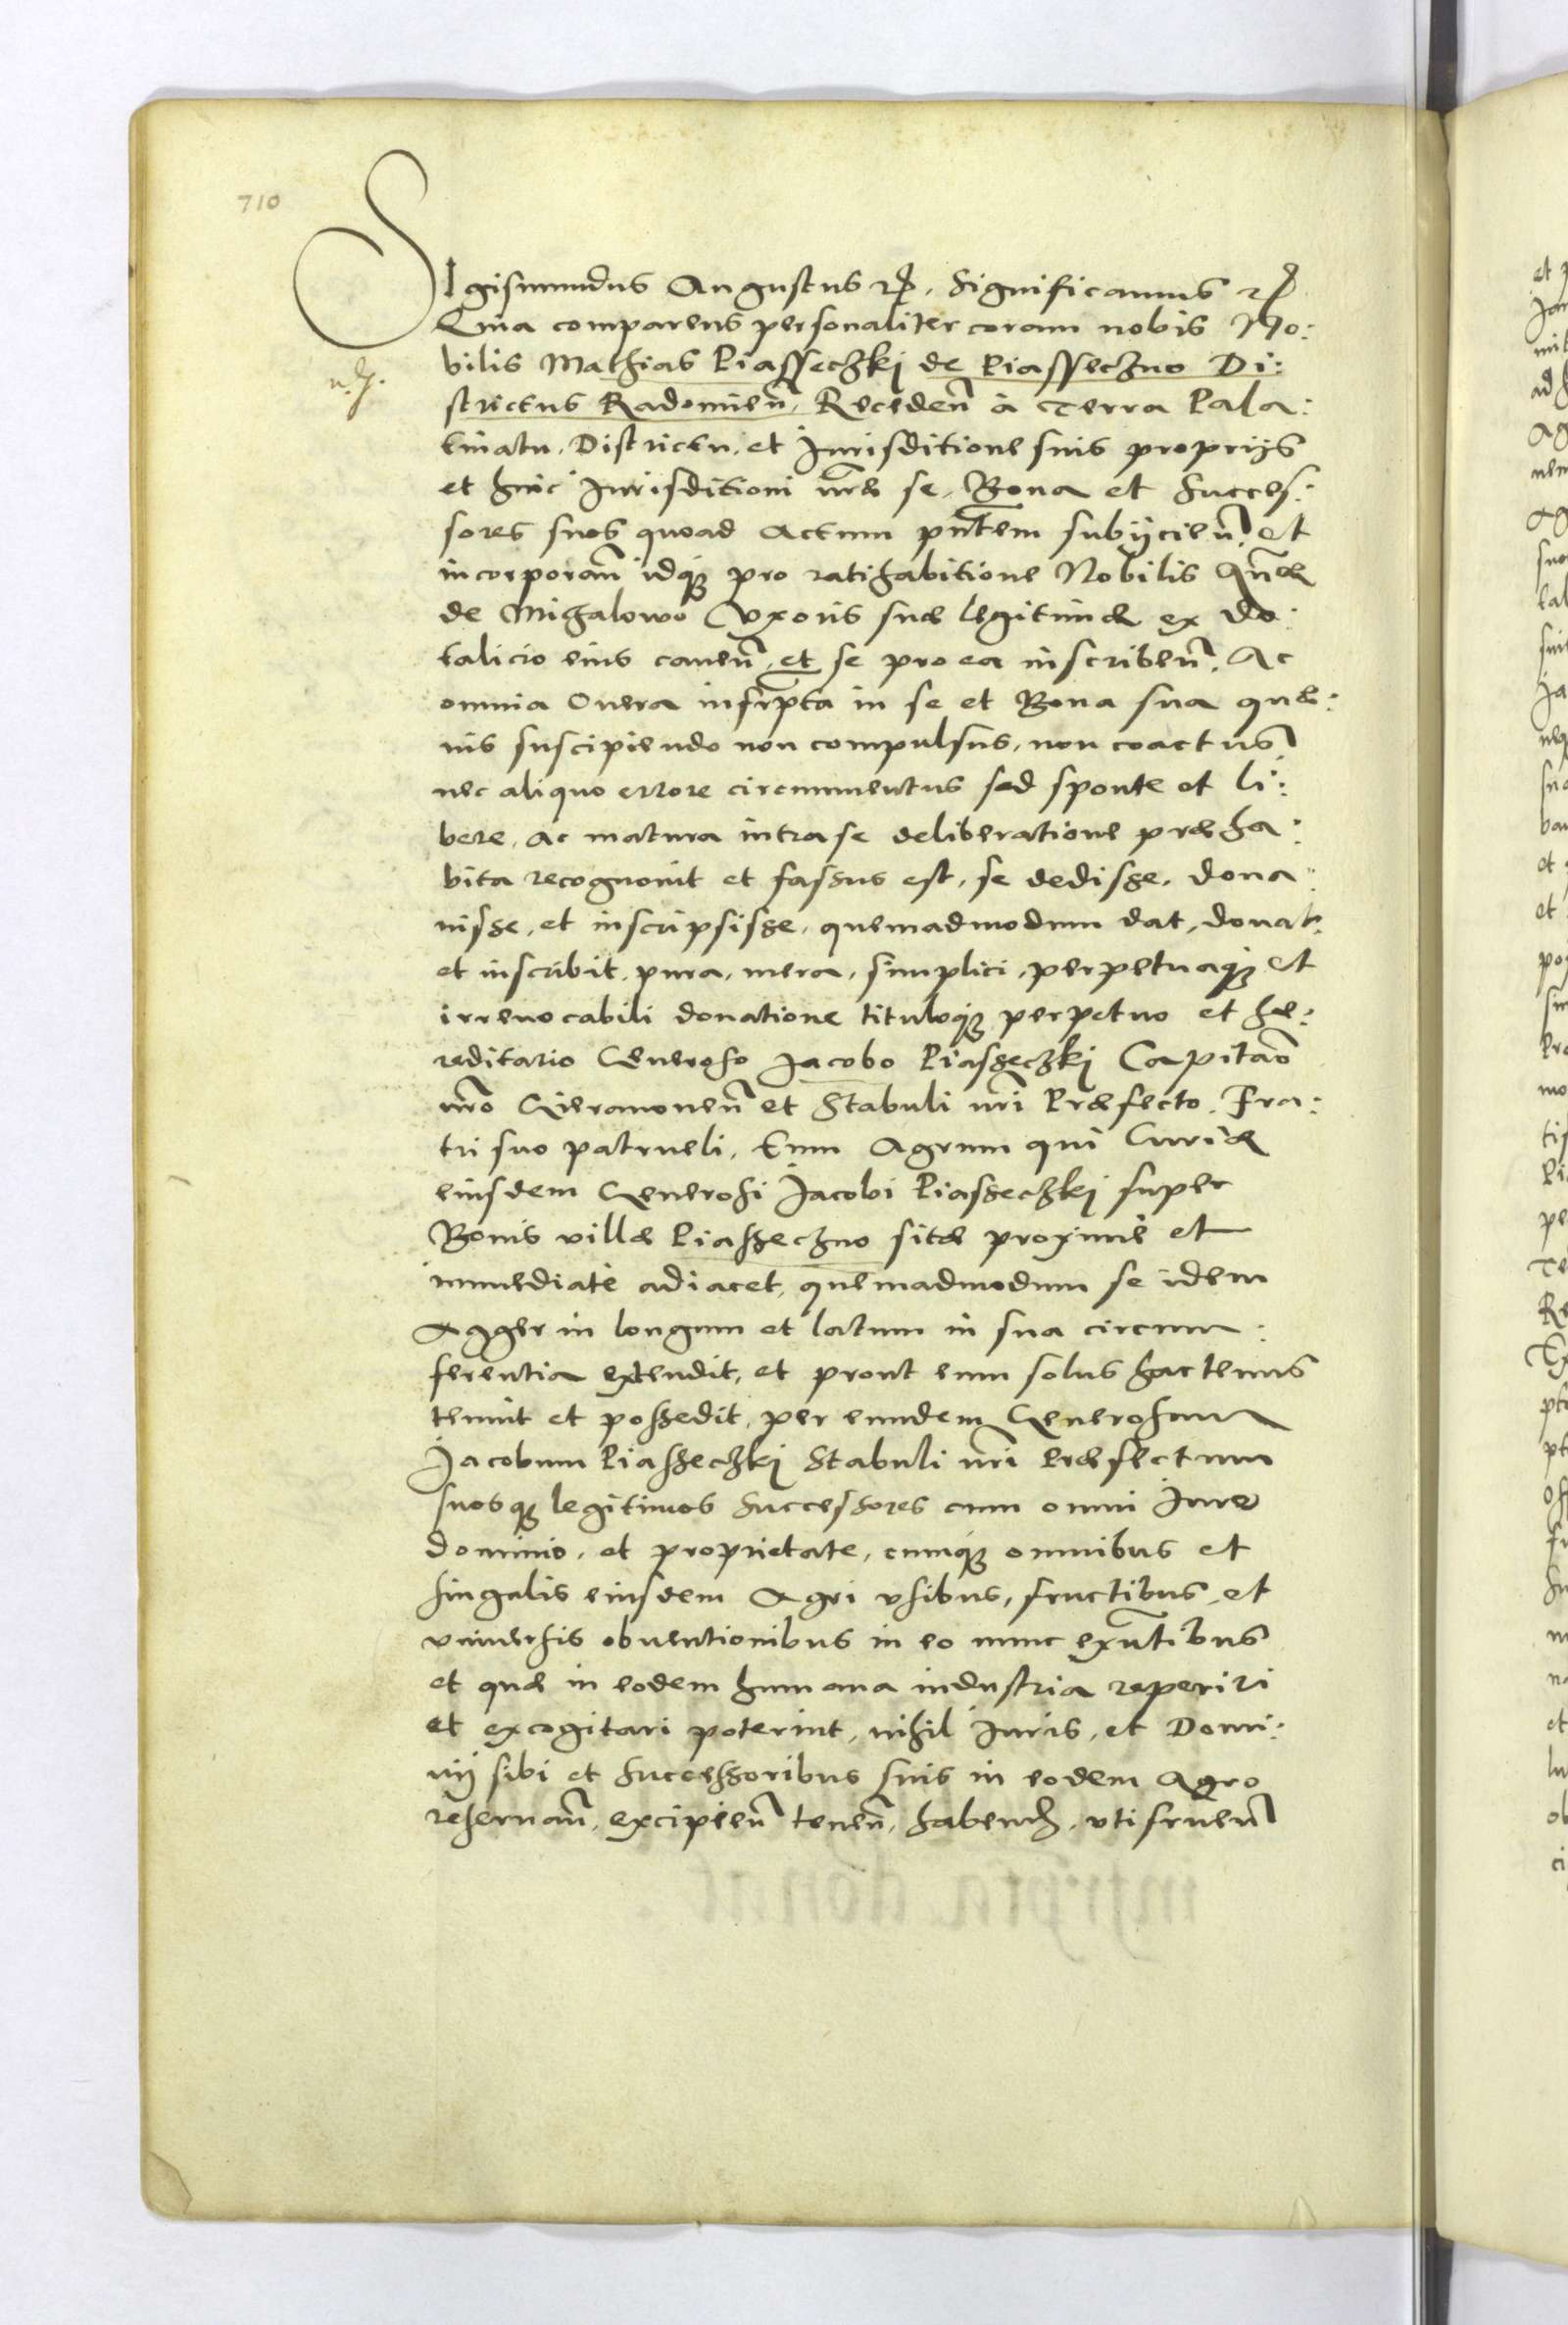 710
SIgismundus Augustus etc. Significamus etc.
Quia comparens personaliter coram nobis No:
bilis Mathias Piassechzkj de Piassechzno Di:
strictus Radomien̄, Receden̄ à Terra Pala:
tinatu, Districtu, et Jurisditione suis proprijs
et huic Jurisditioni nr̄æ se, Bona et Succes:
sores suos quoad Actum pn̄tem subijcien̄, et
incorporan̄ idq; pro ratihabitione Nobilis Annæ
de Migalowo Vxoris suæ legitimæ ex do:
talicio eius cauen̄, et se pro ea inscriben̄. Ac
omnia Onera infrp̄ta in se et Bona sua quæ:
uis suscipiendo non compulsus, non coactus
nec aliquo errore circumuentus sed sponte et li:
bere, ac matura intra se deliberatione præha:
bita recognouit et fassus est, se dedisse, dona:
uisse, et inscripsisse, quemadmodum dat, donat,
et inscribit, pura, mera, simplici, perpetuaq; et
irreuocabili donatione tituloq; perpetuo et hæ:
reditario Generoso Jacobo Piassechzkj Capitāo
nr̄o Gieranonen̄ et Stabuli nr̄i Præfecto, Fra:
tri suo patrueli, Eum Agrum qui Curiæ
eiusdem Generosi Jacobi Piassechzkj super
Bonis villæ Piassechzno sitæ proximè et
immediatè adiacet, quemadmodum se idem
Agger in longum et latum in sua circum:
ferentia extendit, et prout eum solus hactenus
tenuit et possedit, per eundem Generosum
Jacobum Piassechzkj Stabuli nr̄i Præfectum
suosq; legitimos Successores cum omni Jure
dominio, et proprietate, cumq; omnibus et
singulis eiusdem Agri vsibus, fructibus, et
vniuersis obuentionibus in eo nunc exn̄tibus
et quæ in eodem humana industria reperiri
et excogitari poterint, nihil Juris, et Domi:
nij sibi et Successoribus suis in eodem Agro
reseruan̄, excipien̄ tenen̄, habend, vtifruen̄